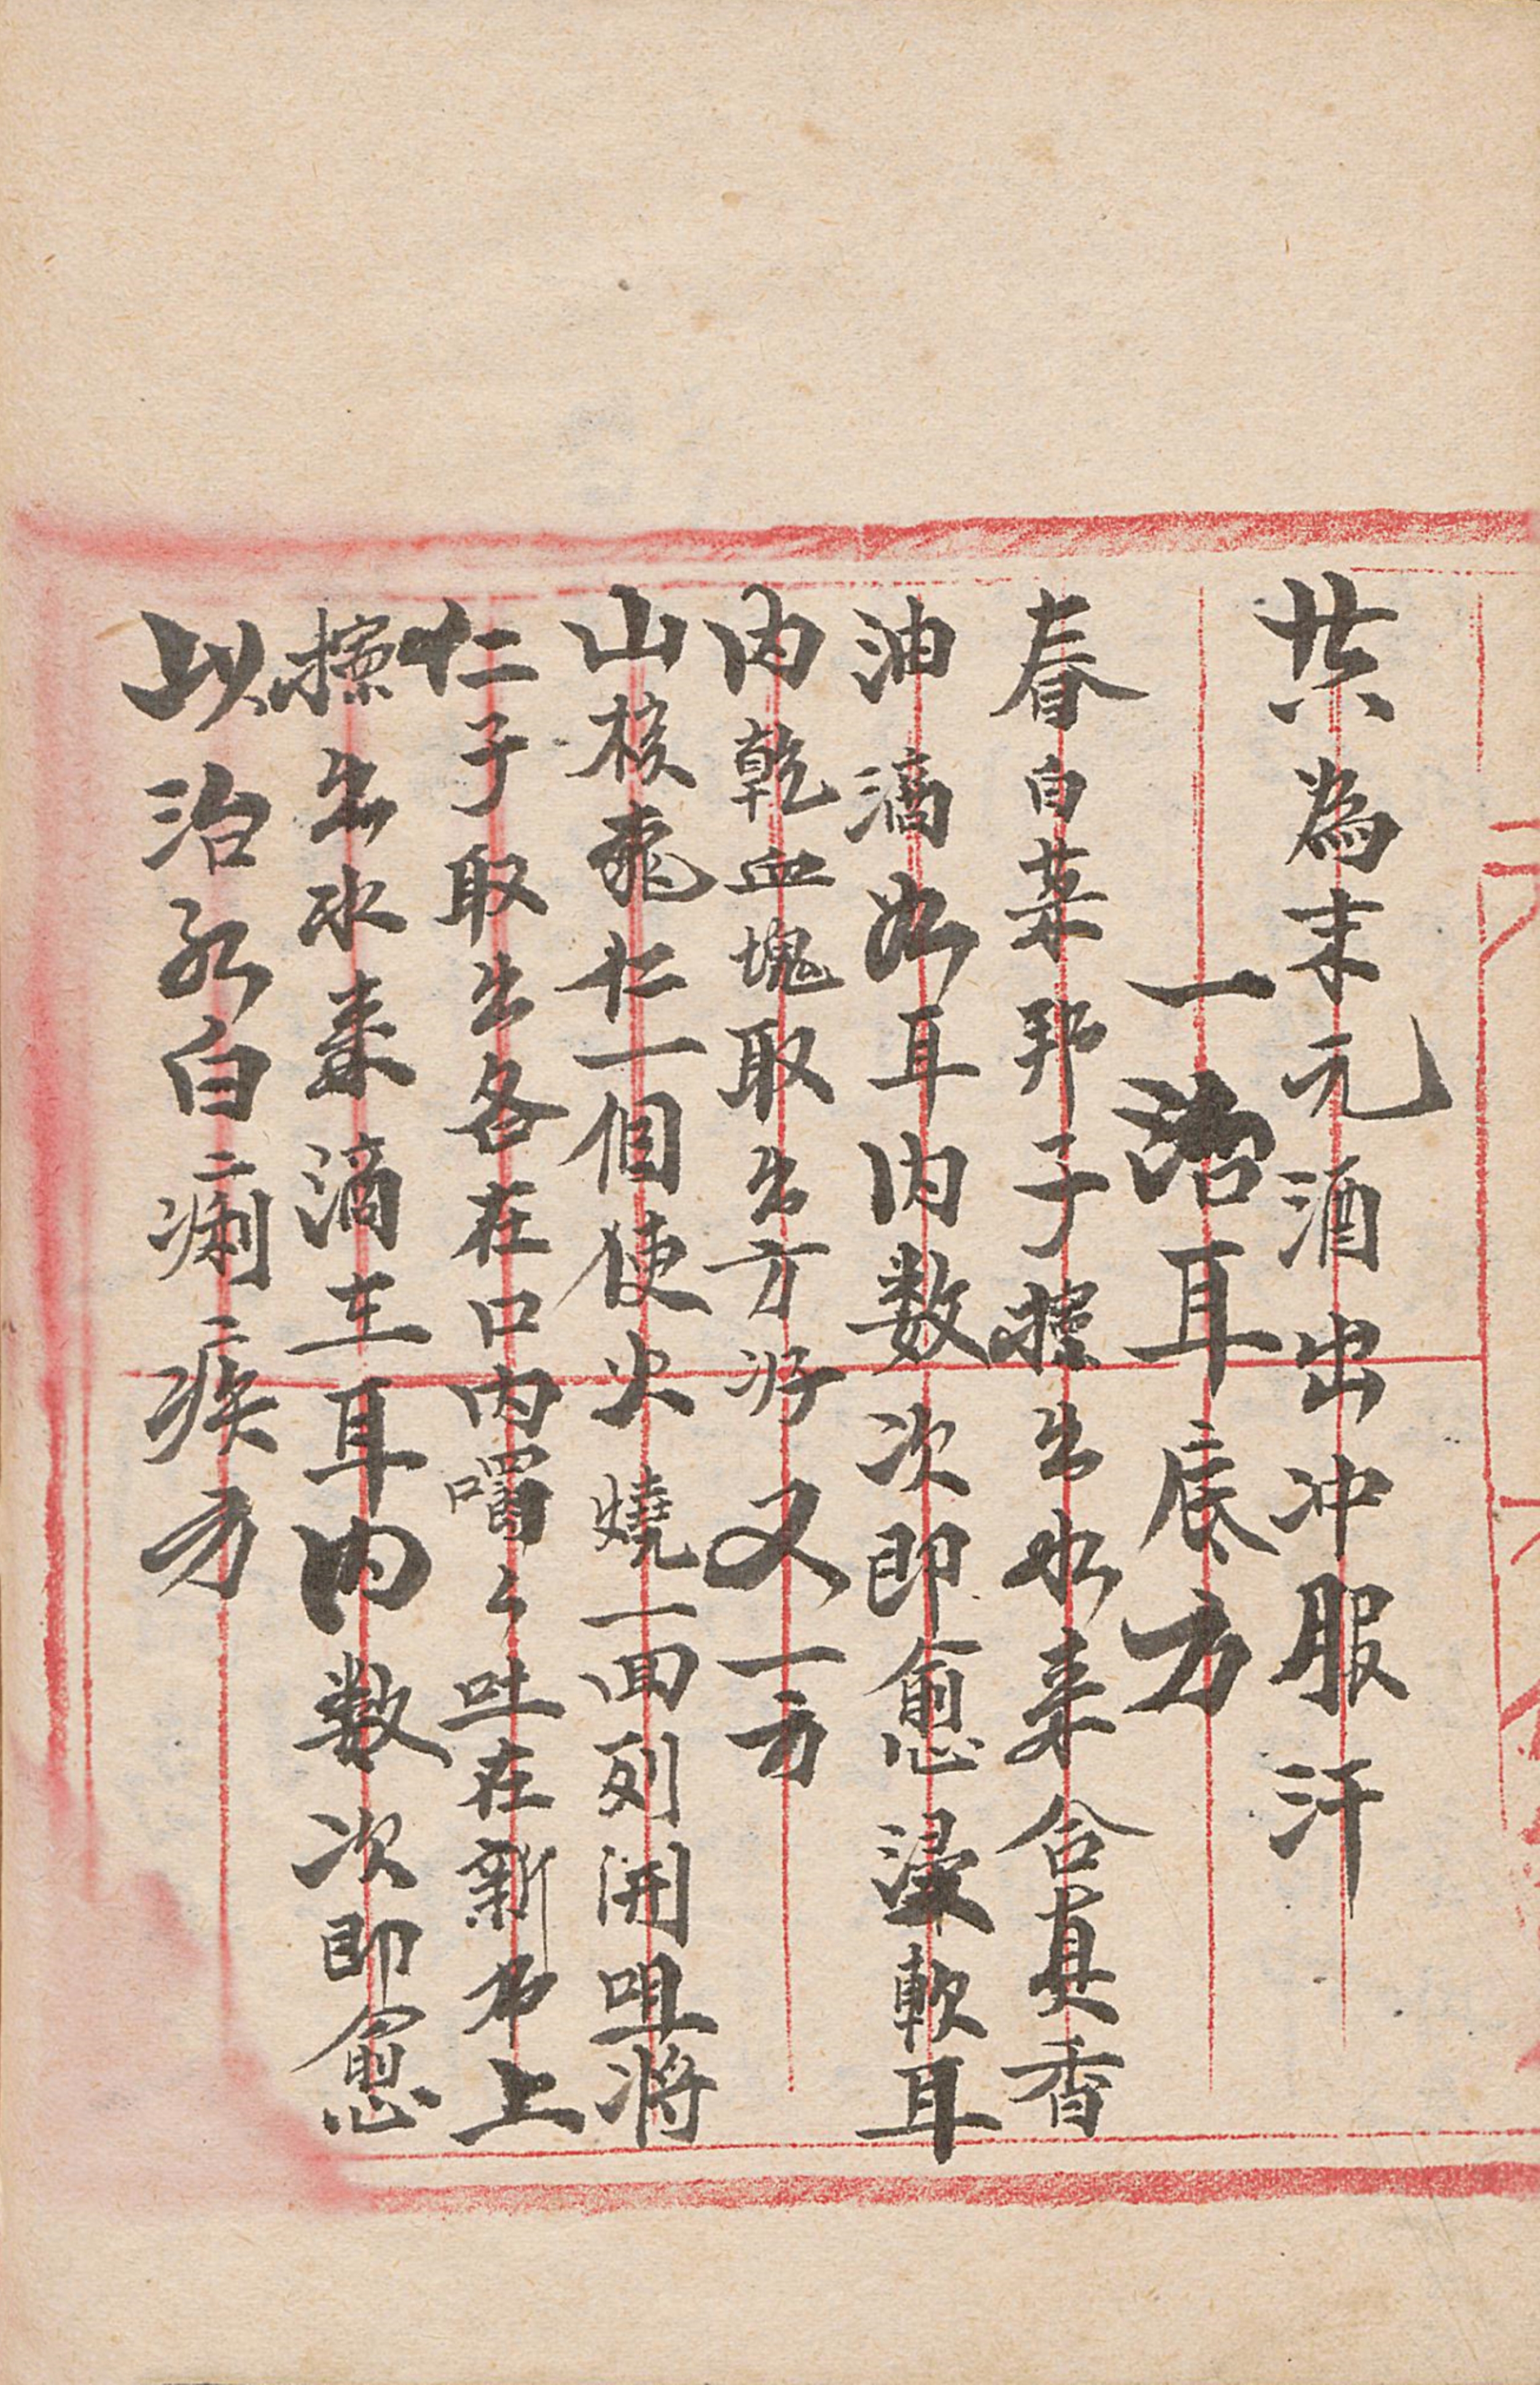 共為末元酒出冲服汗
一治耳底方
春白菜邦子擰出水来合真香
油滴如耳内数次即愈浸軟耳
内乾血塊取出方好又一方
山核桃仁一個使火燒一面列開咀將
仁子取出各在口内嚼々吐在新布上
擰出水来滴在耳内数次即愈
以治紅白痢疾方